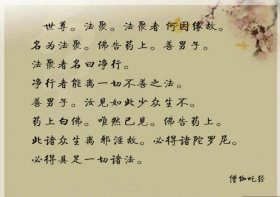 世尊。法聚。法聚者何因缘故。
名为法聚。佛告药上。善男子。
法聚者名曰净行。
净行者能离一切不善之法。
善男子。汝见如此少众生不。
药上白佛。唯然已见。佛告药上。
此诸众生离邪淫故。必得诸陀罗尼。
必得具足一切诸法。
僧伽吒经